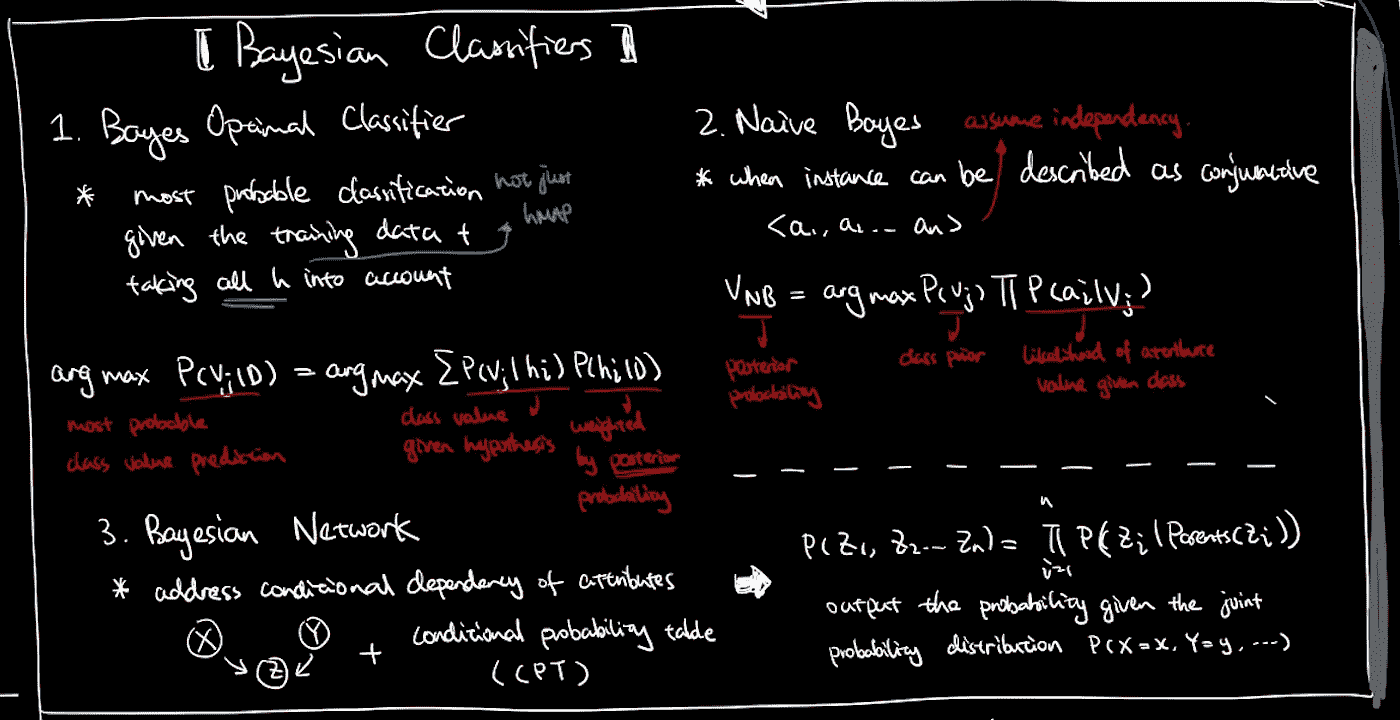 [ Bayesian Classifiers ]
1. Bayes Optimal Classifier
* most probable classification
given the training data +
taking all h into account
not just
hMAP
arg max P(Vj|D) = arg max Σ P(Vj|hi) P(hi|D)
most probable
class value prediction
class value
given hypothesis
weighted
by posterior
probability
2. Naive Bayes
assume independency.
* when instance can be described as conjunctive
<a1, a2... an>
VNB = arg max P(Vj) Π P(ai|Vj)
posterior
probability
class prior
likelihood of attribute
value given class
3. Bayesian Network
* address conditional dependency of attributes
X Y
Z
+ conditional probability table
(CPT)
P(Z1, Z2... Zn) = Π i=1 n P(Zi|Parents(Zi))
output the probability given the joint
probability distribution P(X=x, Y=y, ...)